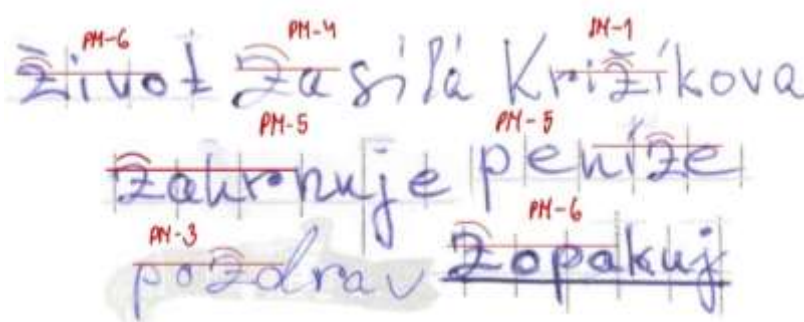 PM-6 PM-4 PM-1
život zasílá Křižíkova
PM-5 PM-5
zahrnuje peníze
PM-3 PM-6
pozdrav zopakuj